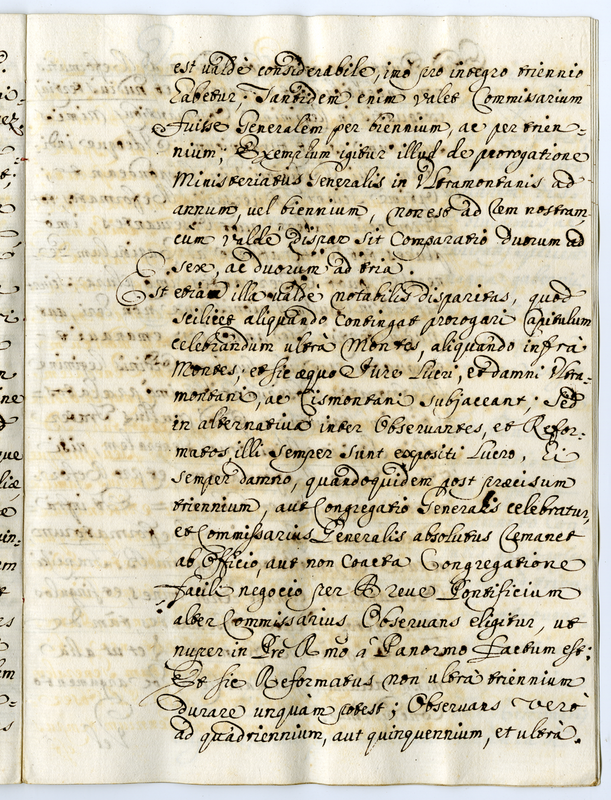 est valdè considerabile, imò pro integro triennio
habetur. Tantidem enim valet Commissarium
fuisse Generalem per biennium, ac per trien=
nium; Exemplum igitur illud de prorogatione
Ministeriatus Generalis in Ultramontanis ad
annum, vel biennium, non est ad rem nostram
cum valdè dispar sit Comparatio duorum ad
sex, ac duorum ad tria.
Est etiam illa valdè notabilis disparitas, quod
scilicet aliquando Contingat prorogari Capitulum
celebrandum ultrà Montes, aliquando infrà
Montes; et sic æquo Jure Lucri, et damni Ultra=
montani, ac Cismontani subjaceant; Sed
in alternativa inter Observantes, et Refor=
matos, illi semper sunt expositi Lucro, Hi
semper damno, quandoquidem post præcisum
triennium, aut Congregatio Generalis celebratur,
et Commissarius Generalis absolutus remanet
ab Officio, aut non Coacta Congregatione
facili negocio per Breve Pontificium
alter Commissarius Observans eligitur, ut
nuper in Pre Rmo à Panormo factum est:
Et sic Reformatus non ultra triennium
durare unquam potest; Observans verò
ad quadriennium, aut quinquennium, et ultrà.